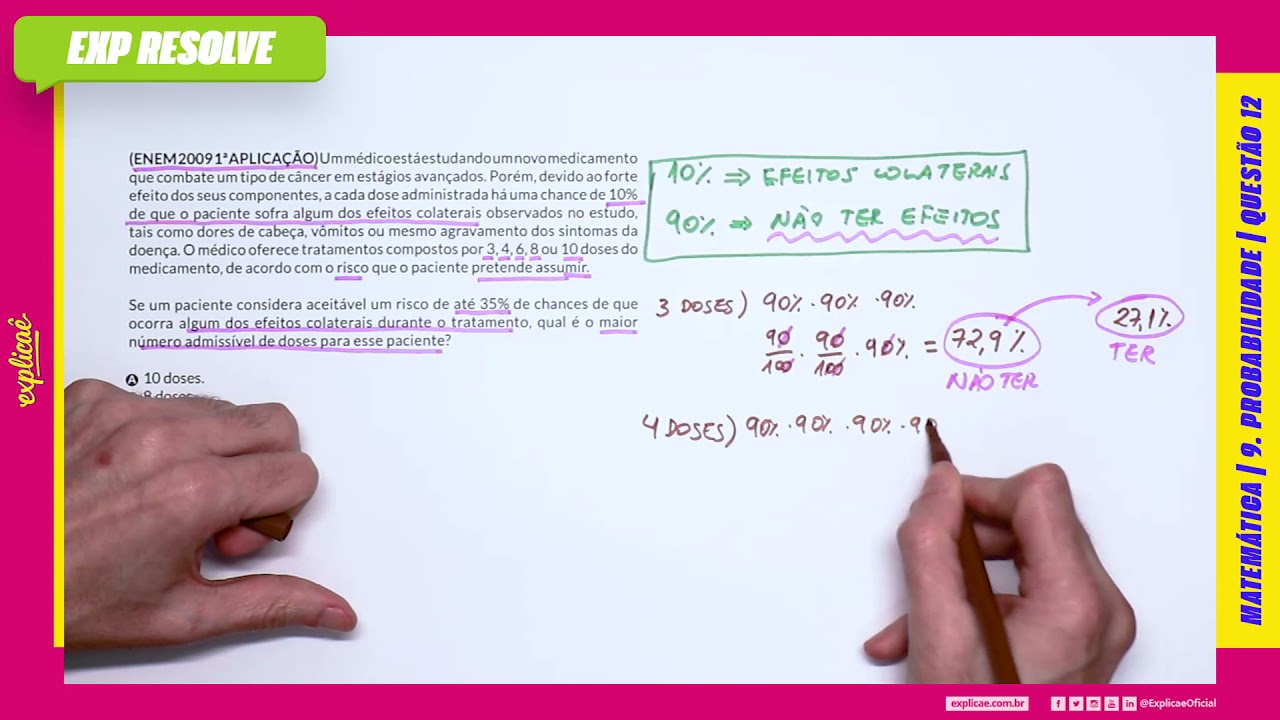 EXP RESOLVE
(ENEM 2009 1ª APLICAÇÃO) Um médico está estudando um novo medicamento
que combate um tipo de câncer em estágios avançados. Porém, devido ao forte
efeito dos seus componentes, a cada dose administrada há uma chance de 10%
de que o paciente sofra algum dos efeitos colaterais observados no estudo,
tais como dores de cabeça, vômitos ou mesmo agravamento dos sintomas da
doença. O médico oferece tratamentos compostos por 3, 4, 6, 8 ou 10 doses do
medicamento, de acordo com o risco que o paciente pretende assumir.
Se um paciente considera aceitável um risco de até 35% de chances de que
ocorra algum dos efeitos colaterais durante o tratamento, qual é o maior
número admissível de doses para esse paciente?
A 10 doses.
8 doses
10% ⇒ EFEITOS COLATERAIS
90% ⇒ NÃO TER EFEITOS
3 DOSES) 90% · 90% · 90%
90/100 · 90/100 · 90% = 72,9%
NÃO TER
27,1%
TER
4 DOSES) 90% · 90% · 90% · 9
explicaê
MATEMÁTICA | 9. PROBABILIDADE | QUESTÃO 12
explicae.com.br
@ExplicaeOficial